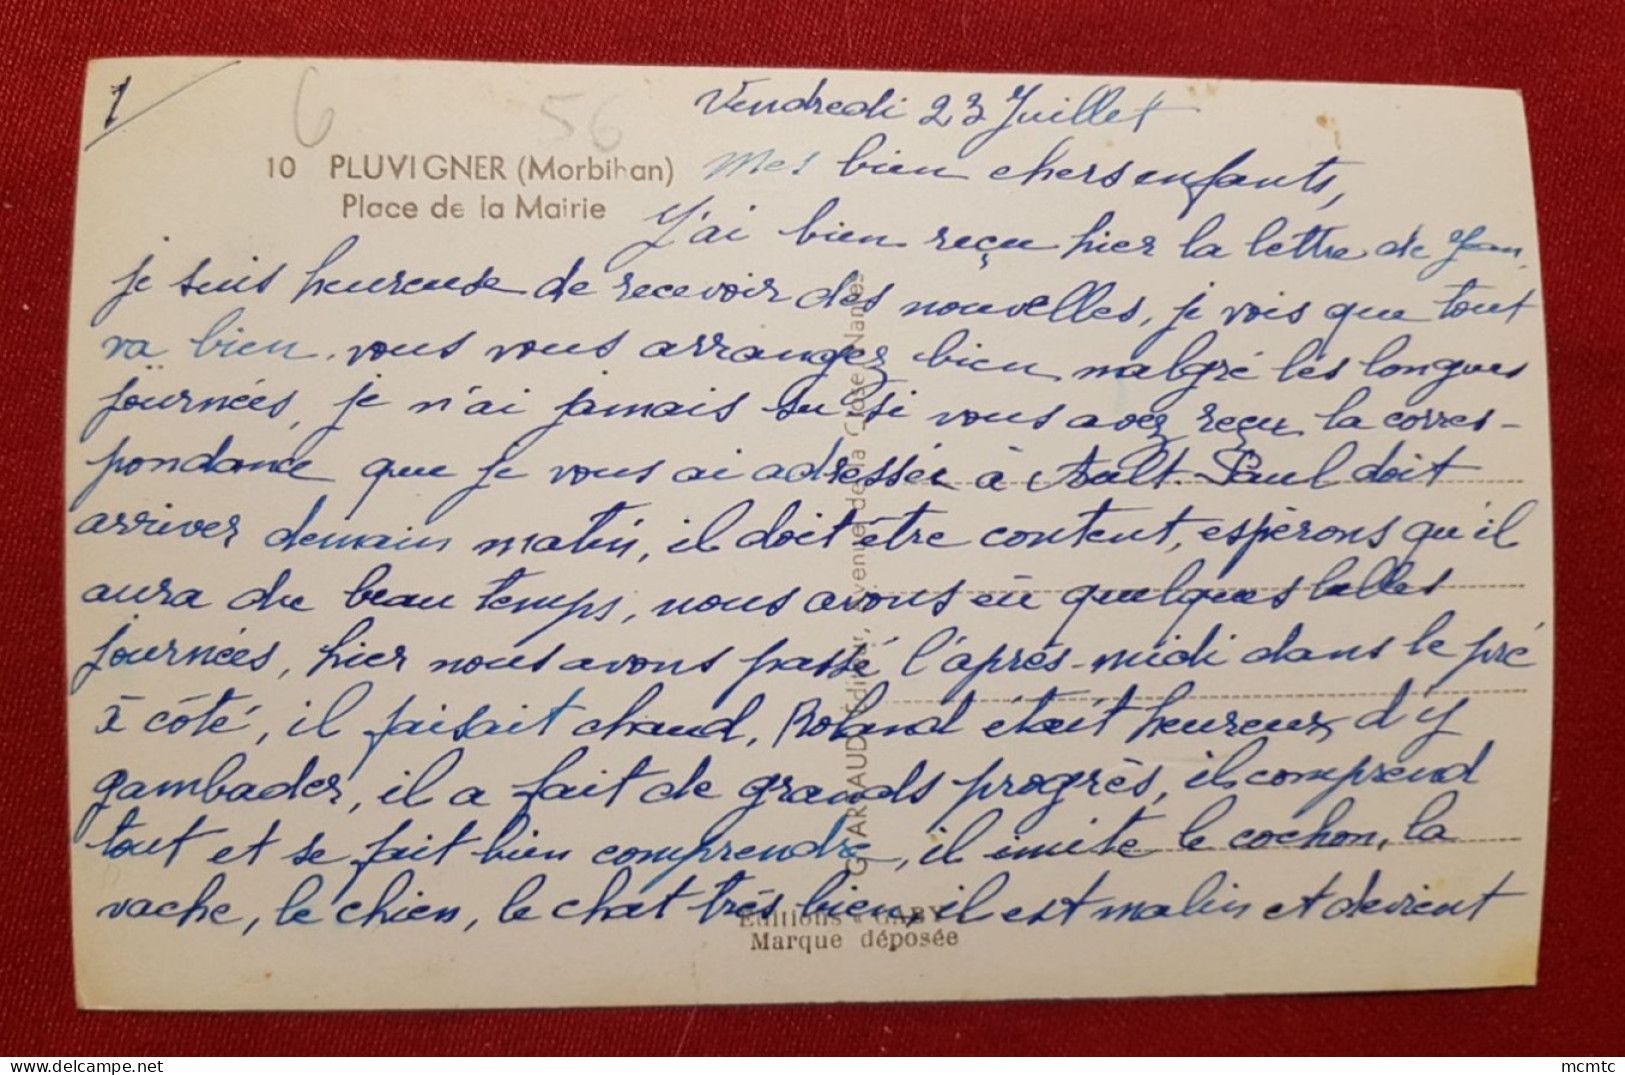 1
6
56
Vendredi 23 Juillet
10 PLUVIGNER (Morbihan)
Place de la Mairie
Mes bien chers enfants,
J'ai bien reçu hier la lettre de Jean,
je suis heureuse de recevoir des nouvelles, je vois que tout
va bien, vous vous arrangez bien malgré les longues
journées, je n'ai jamais su si vous avez reçu la corres-
pondance que je vous ai adressée à Ault. Paul doit
arriver demain matin, il doit être content, espérons qu'il
aura du beau temps, nous avons eu quelques belles
journées, hier nous avons passé l'après-midi dans le pré
à côté, il faisait chaud, Roland était heureux d'y
gambader, il a fait de grands progrès, il comprend
tout et se fait bien comprendre, il imite le cochon, la
vache, le chien, le chat très bien, il est malin et devient
GARAUD Editeur, avenue de la Close Nantes
Editions « GABY »
Marque déposée
mcmtc